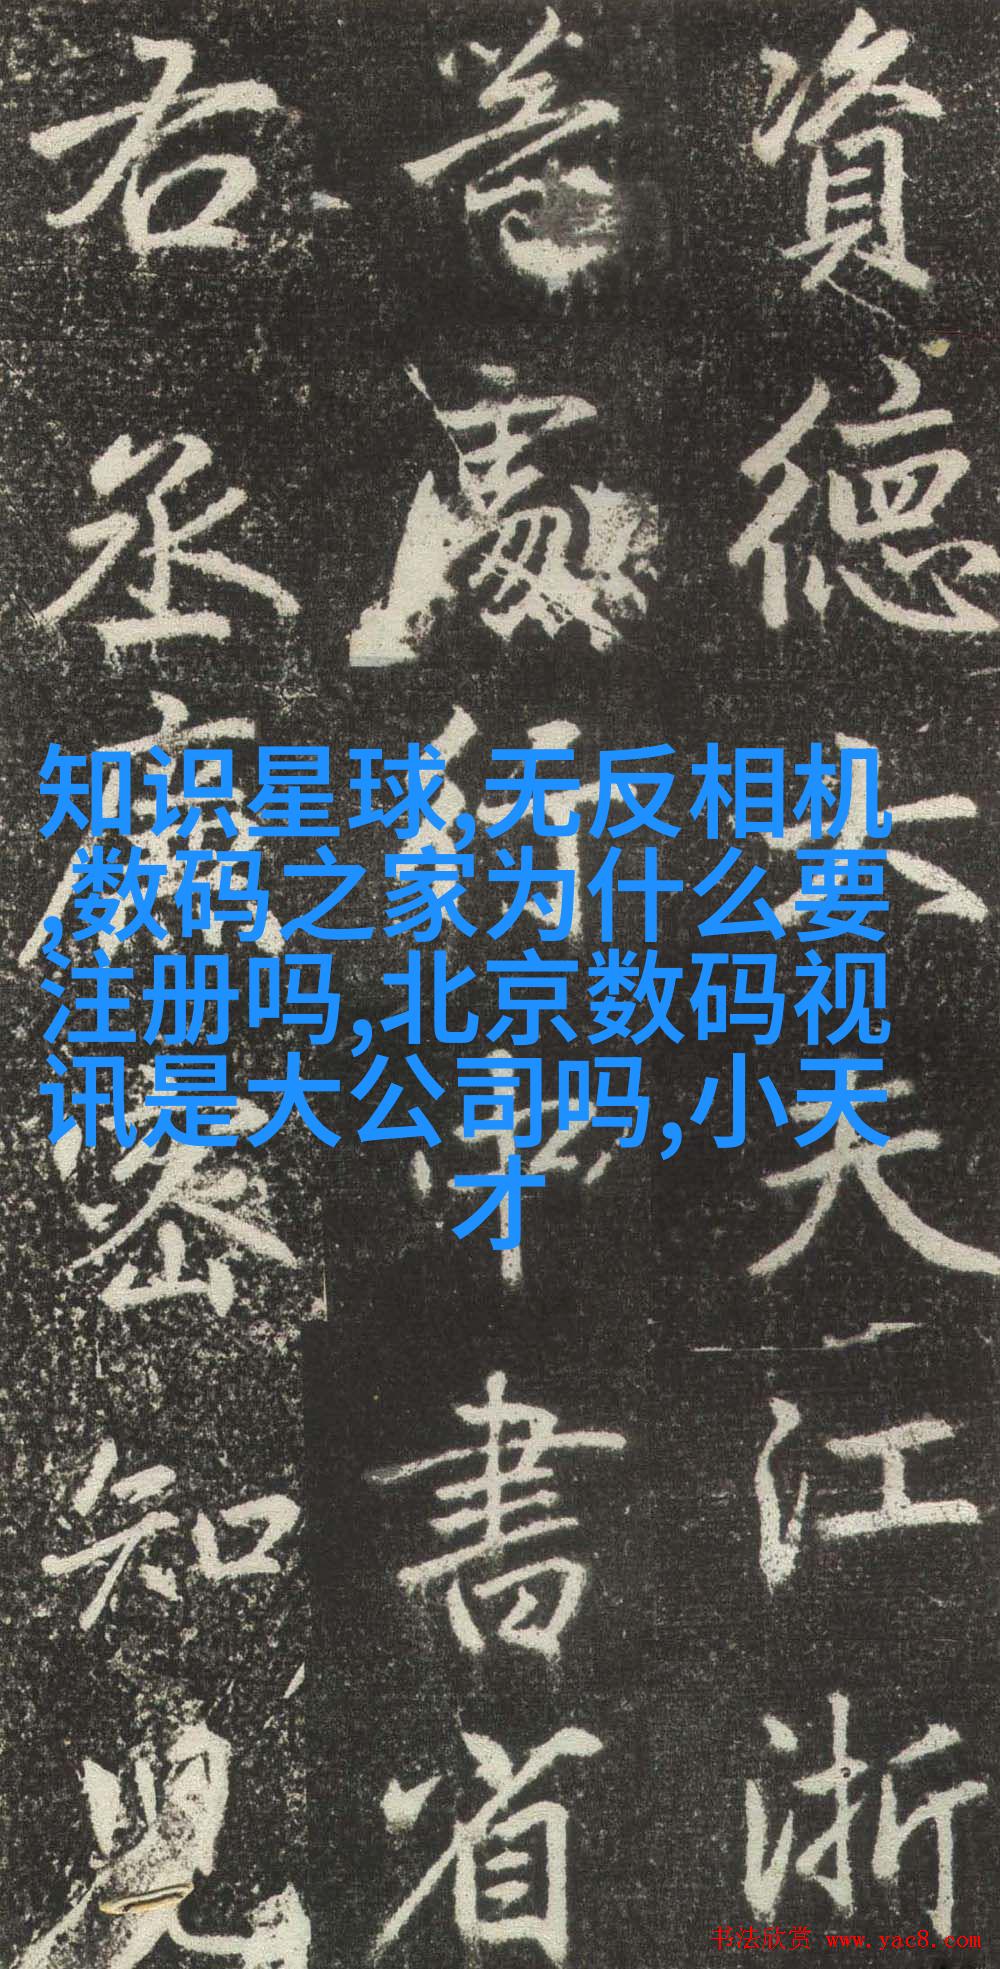 資德大夫江浙
等處行中書省
右丞廉密知兒
知识星球,无反相机
,数码之家为什么要
注册吗,北京数码视
讯是大公司吗,小天
才
书法欣赏 www.yac8.com